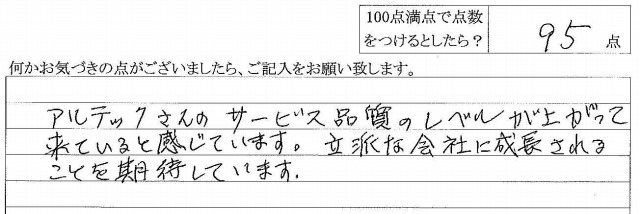 100点満点で点数
をつけるとしたら？ 95 点
何かお気づきの点がございましたら、ご記入をお願い致します。
アルテックさんの サービス品質のレベルが上がって
来ていると感じています。立派な会社に成長される
ことを期待しています.